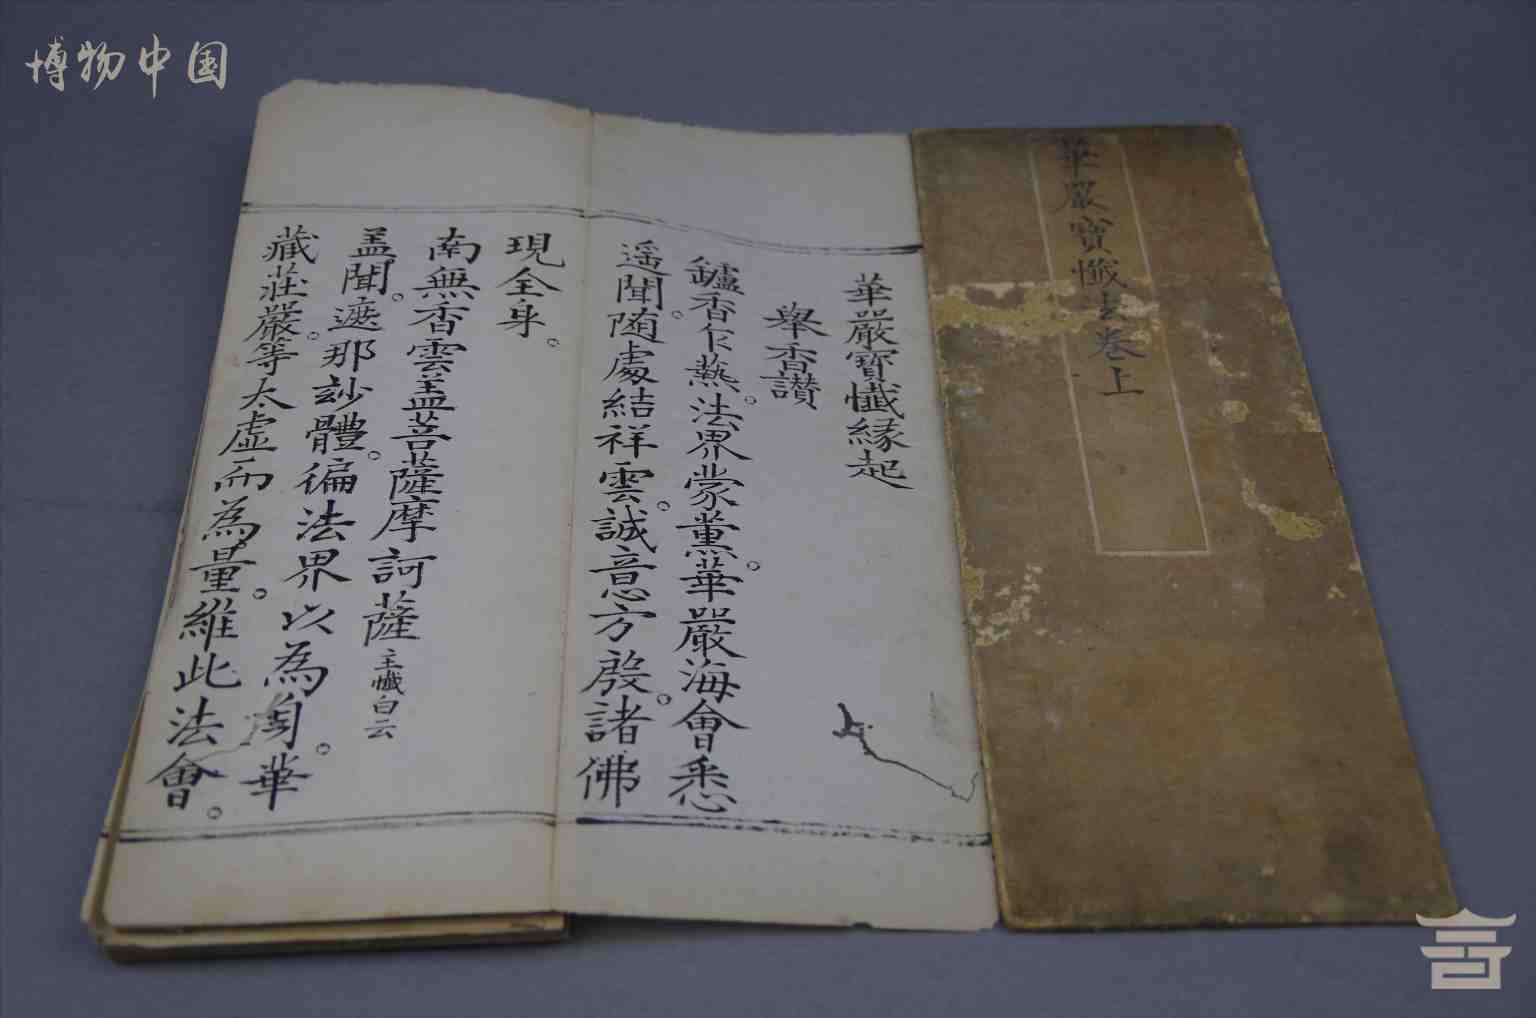 博物中国
華嚴寶懺法卷上
華嚴寶懺緣起
舉香讃
鑪香乍爇。法界蒙薰。華嚴海會悉
遥聞。随處結祥雲。誠意方殷。諸佛
現全身。
南無香雲盖菩薩摩訶薩主懺白云
盖聞。遮那玅體。徧法界以為身。華
藏莊嚴。等太虛而為量。維此法會。